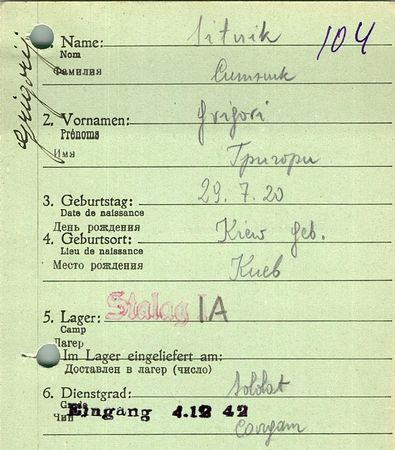 Grigori
1. Name: Sitnik 104
Nom
Фамилия Ситник
2. Vornamen: Grigori
Prénoms
Имя Григори
3. Geburtstag: 29.7.20
Date de naissance
День рождения
4. Geburtsort: Kiew Geb.
Lieu de naissance
Место рождения Киев
5. Lager: Stalag IA
Camp
Лагер
Im Lager eingeliefert am:
Доставлен в лагер (число)
6. Dienstgrad: Soldat
Grade
Eingang 4.12 42
Чин Солдат